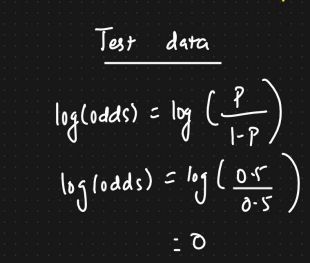 Test data
log(odds) = log (P/1-P)
log(odds) = log (0.5/0.5)
= 0